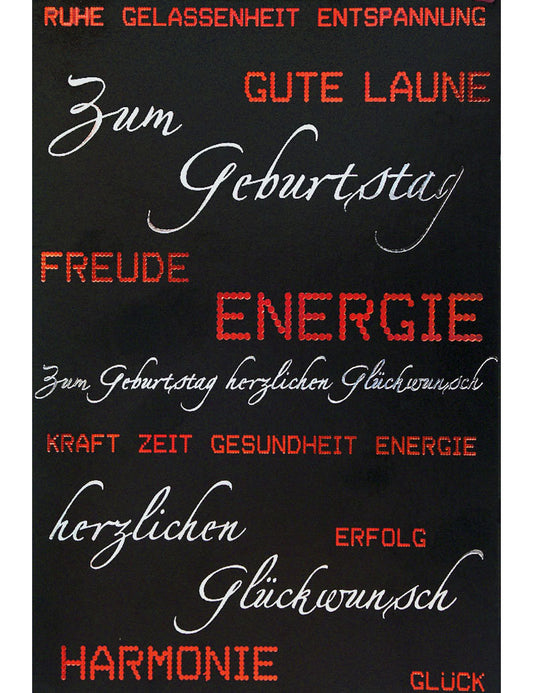 RUHE GELASSENHEIT ENTSPANNUNG
GUTE LAUNE
Zum
Geburtstag
FREUDE
ENERGIE
Zum Geburtstag herzlichen Glückwunsch
KRAFT ZEIT GESUNDHEIT ENERGIE
herzlichen
ERFOLG
Glückwunsch
HARMONIE
GLÜCK